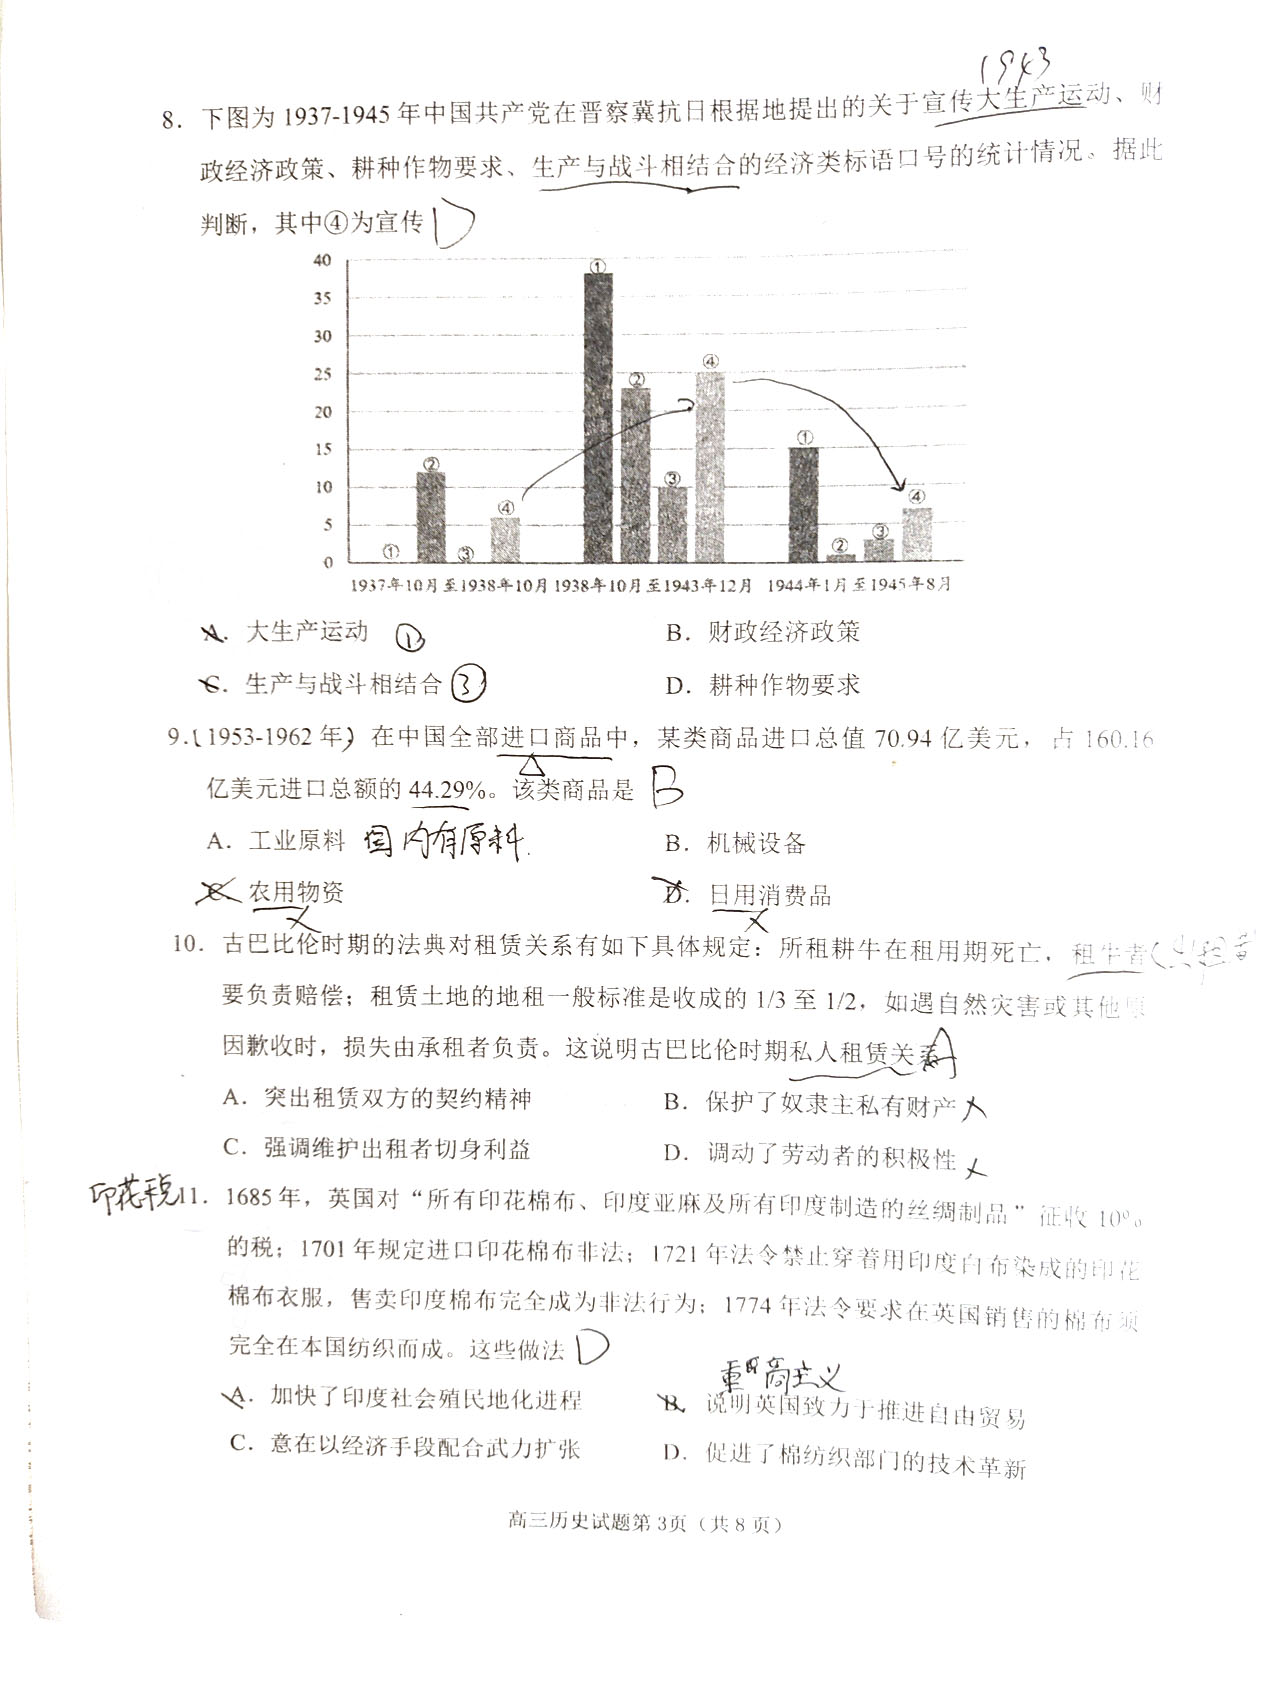 1943
8．下图为 1937-1945 年中国共产党在晋察冀抗日根据地提出的关于宣传大生产运动、财
政经济政策、耕种作物要求、生产与战斗相结合的经济类标语口号的统计情况。据此
判断，其中④为宣传 D
40
35
30
25
20
15
10
5
0
① ② ③ ④
① ② ③ ④
① ② ③ ④
1937年10月至1938年10月 1938年10月至1943年12月 1944年1月至1945年8月
A．大生产运动 ① B．财政经济政策
C．生产与战斗相结合 ③ D．耕种作物要求
9.（1953-1962 年）在中国全部进口商品中，某类商品进口总值 70.94 亿美元，占 160.16
亿美元进口总额的 44.29%。该类商品是 B
A．工业原料 国内有原料. B．机械设备
C．农用物资 D．日用消费品
10．古巴比伦时期的法典对租赁关系有如下具体规定：所租耕牛在租用期死亡，租牛者
要负责赔偿；租赁土地的地租一般标准是收成的 1/3 至 1/2，如遇自然灾害或其他原
因歉收时，损失由承租者负责。这说明古巴比伦时期私人租赁关系 A
A．突出租赁双方的契约精神 B．保护了奴隶主私有财产
C．强调维护出租者切身利益 D．调动了劳动者的积极性
印花税 11．1685 年，英国对“所有印花棉布、印度亚麻及所有印度制造的丝绸制品”征收 10%
的税；1701 年规定进口印花棉布非法；1721 年法令禁止穿着用印度白布染成的印花
棉布衣服，售卖印度棉布完全成为非法行为；1774 年法令要求在英国销售的棉布须
完全在本国纺织而成。这些做法 D
重商主义
A．加快了印度社会殖民地化进程 B．说明英国致力于推进自由贸易
C．意在以经济手段配合武力扩张 D．促进了棉纺织部门的技术革新
高三历史试题第 3页（共 8 页）